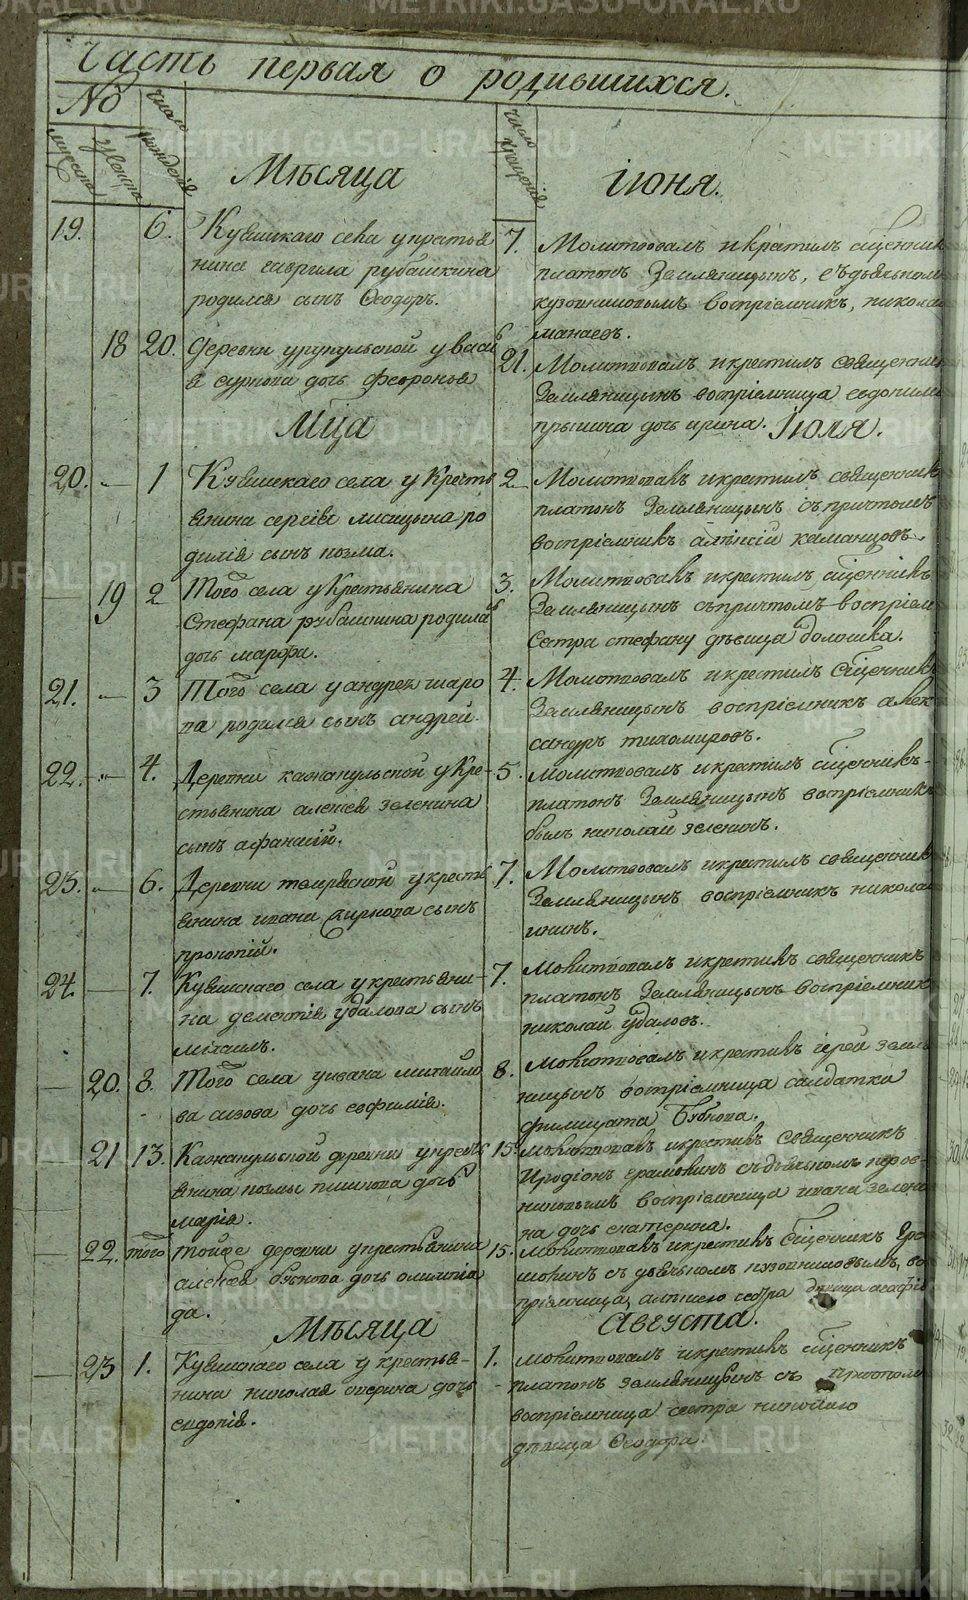 Часть первая о родившихся.
№
мужеска
женска
число рождения
число крещения
Мѣсяца
іюня.
19.
6.
Кувшскаго села у крестья
нина гаврила рубашкина
родился сынъ Ѳеодоръ.
7.
Молитвовалъ и крестилъ сщенник
платонъ Земляницынъ, съ дьякономъ
воспріемникъ, никола
манаевъ.
18
20.
Деревни у васи
я суркова дочь Феврония
21.
Молитвовалъ и крестилъ священник
Земляницынъ воспріемница евдоким
дочь ирина.
Мца
Іюля.
20.
1
Кувшскаго села у Крестъ
янина сергія лисицына ро
дился сынъ козма.
2
Молитвовалъ и крестилъ священник
платонъ Земляницынъ съ причтомъ
воспріемникъ алѣксій каманцовъ.
19
2
Того села у Крестьянина
Стефана рубашкина родилась
дочь марфа.
3.
Молитвовалъ и крестилъ сщенникъ
Земляницынъ съ причтомъ воспріем
Сестра стефану дѣвица
21.
3
Того села у андрея шаро
ва родился сынъ андрей.
4.
Молитвовалъ и крестилъ сщенникъ
Земляницынъ воспріемникъ алек
сандръ тихомировъ.
22.
4.
Деревни кажакульской у Кре-
стьянина алексія зеленина
сынъ афанасій.
5.
Молитвовалъ и крестилъ сщенникъ
платонъ Земляницынъ воспріемникъ
былъ николай зеленинъ.
23.
6.
Деревни у кресть
янина ивана сынъ
прокопій.
7.
Молитвовалъ и крестилъ священник
Земляницынъ воспріемникъ никола
24.
7.
Кувшскаго села у крестьяни-
на дементія удалова сынъ
михаилъ.
7.
Молитвовалъ и крестилъ священникъ
платонъ Земляницынъ воспріемник
николай удаловъ.
20.
8.
Того села у ивана михайло
ва сизова дочь евфимія.
8.
Молитвовалъ и крестилъ іерей земля
ницынъ воспріемница салдатка
филицата Бубнова.
21
13.
Кажакульской деревни у кресть
янина козмы дочь
марія.
15.
Молитвовалъ и крестилъ Священникъ
Иродіонъ ерамовинъ съ дьякономъ
воспріемница ивана зелени
на дочь екатерина.
22.
того
тойже деревни у крестьянина
алексѣя бубнова дочь олимпія
да.
15.
Молитвовалъ и крестилъ сщенникъ
съ дьякономъ во
пріемница, алексѣю сестра дѣвица агафія
Мѣсяца
Августа.
23
1.
Кувшскаго села у крестья-
нина николая дочь
евдокія.
1.
Молитвовалъ и крестилъ сщенникъ
платонъ земляницынъ съ причтомъ
воспріемница сестра николаю
дѣвица Ѳеодора.
METRIKI.GASO-URAL.RU